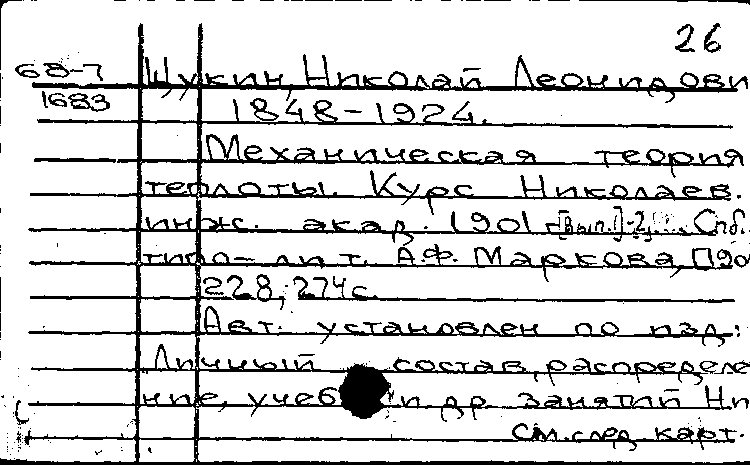 26
68-7 Щукин, Николай Леонидови
1683 1848-1924.
Механическая теория
теплоты. Курс Николаев.
инж. акад. 1901 [Вып.] 2, Спб.
типо-лит. А.Ф. Маркова, [190
228; 274 с.
Авт. установлен по изд:
Личный состав, распределе
ние, учеб и др занятий Ни
См. след карт.